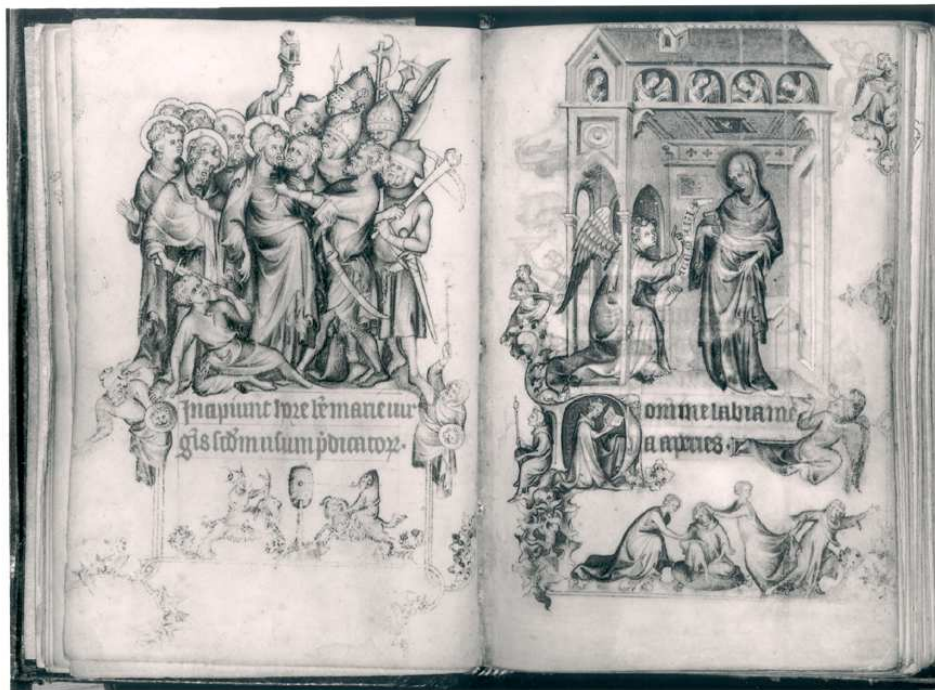 Incipiunt hore bē marie uir
gis scdm usum p̄dicatoꝝ.
Domine labia me
a aꝑies.